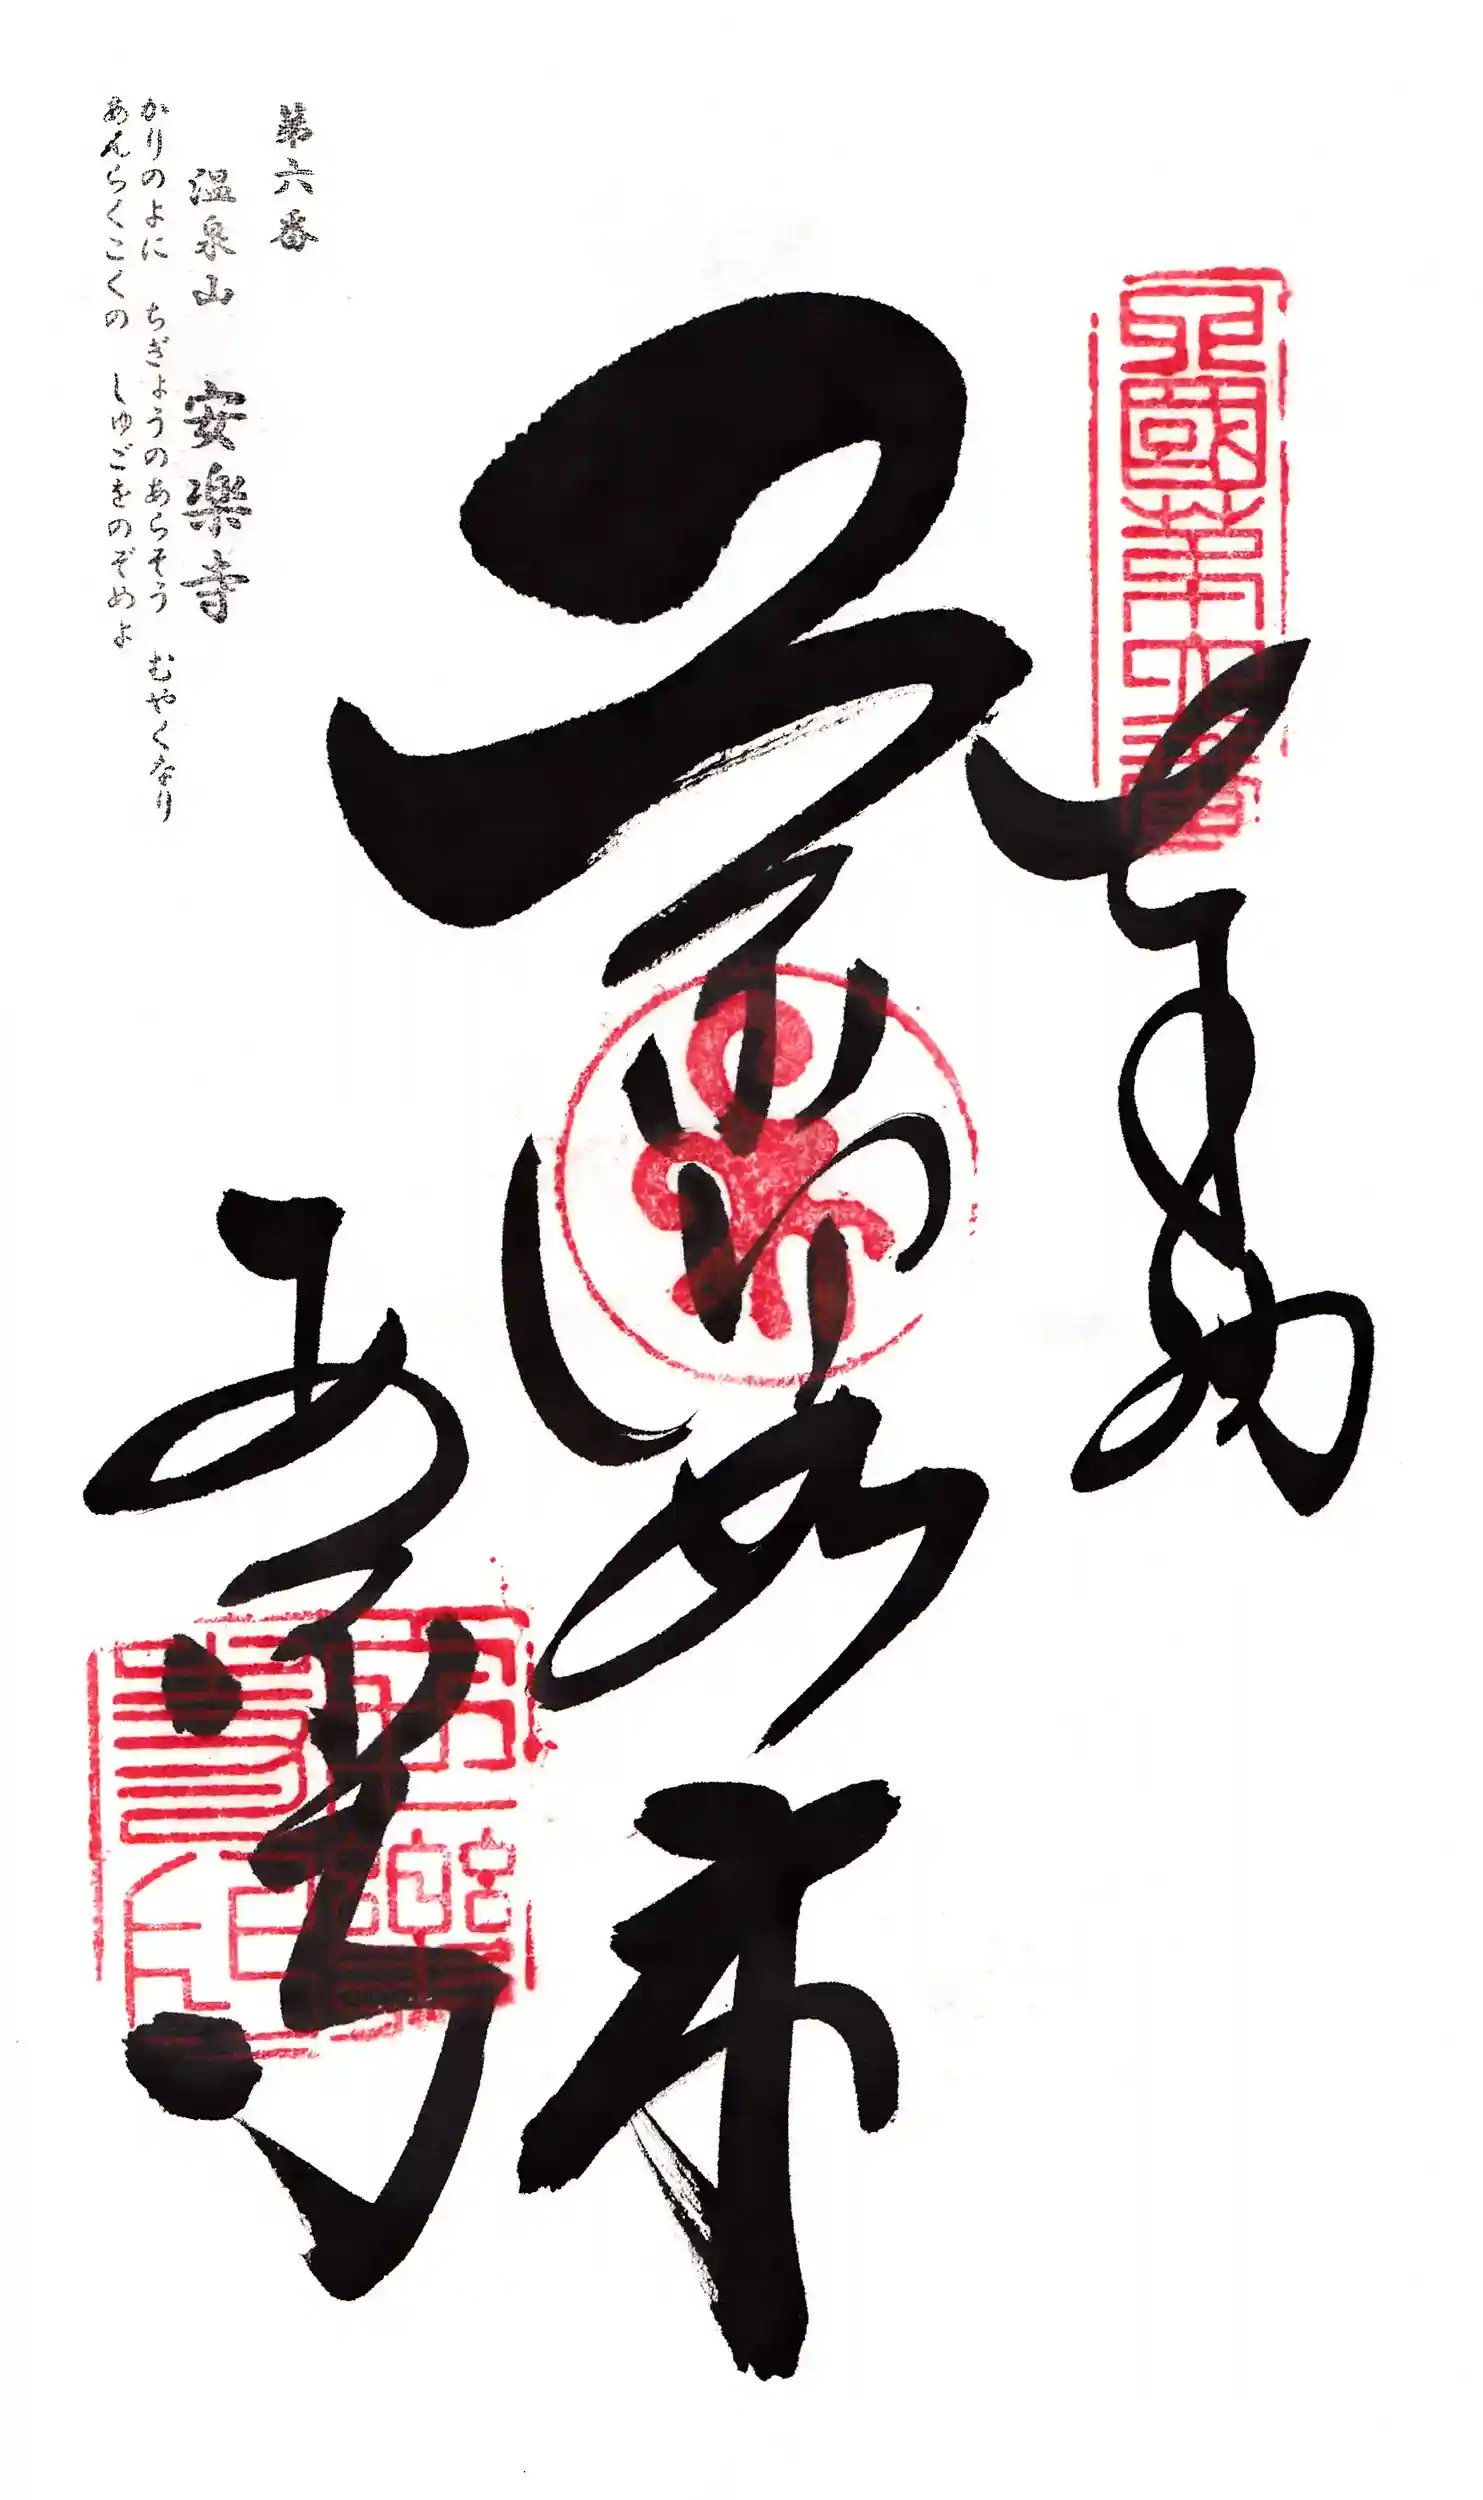 四國第六番
奉納
薬師如来
第六番
温泉山　安楽寺
かりのよに　ちぎょうのあらそう　むやくなり
あんらくこくの　しゅごをのぞめよ
安楽寺
安樂寺印